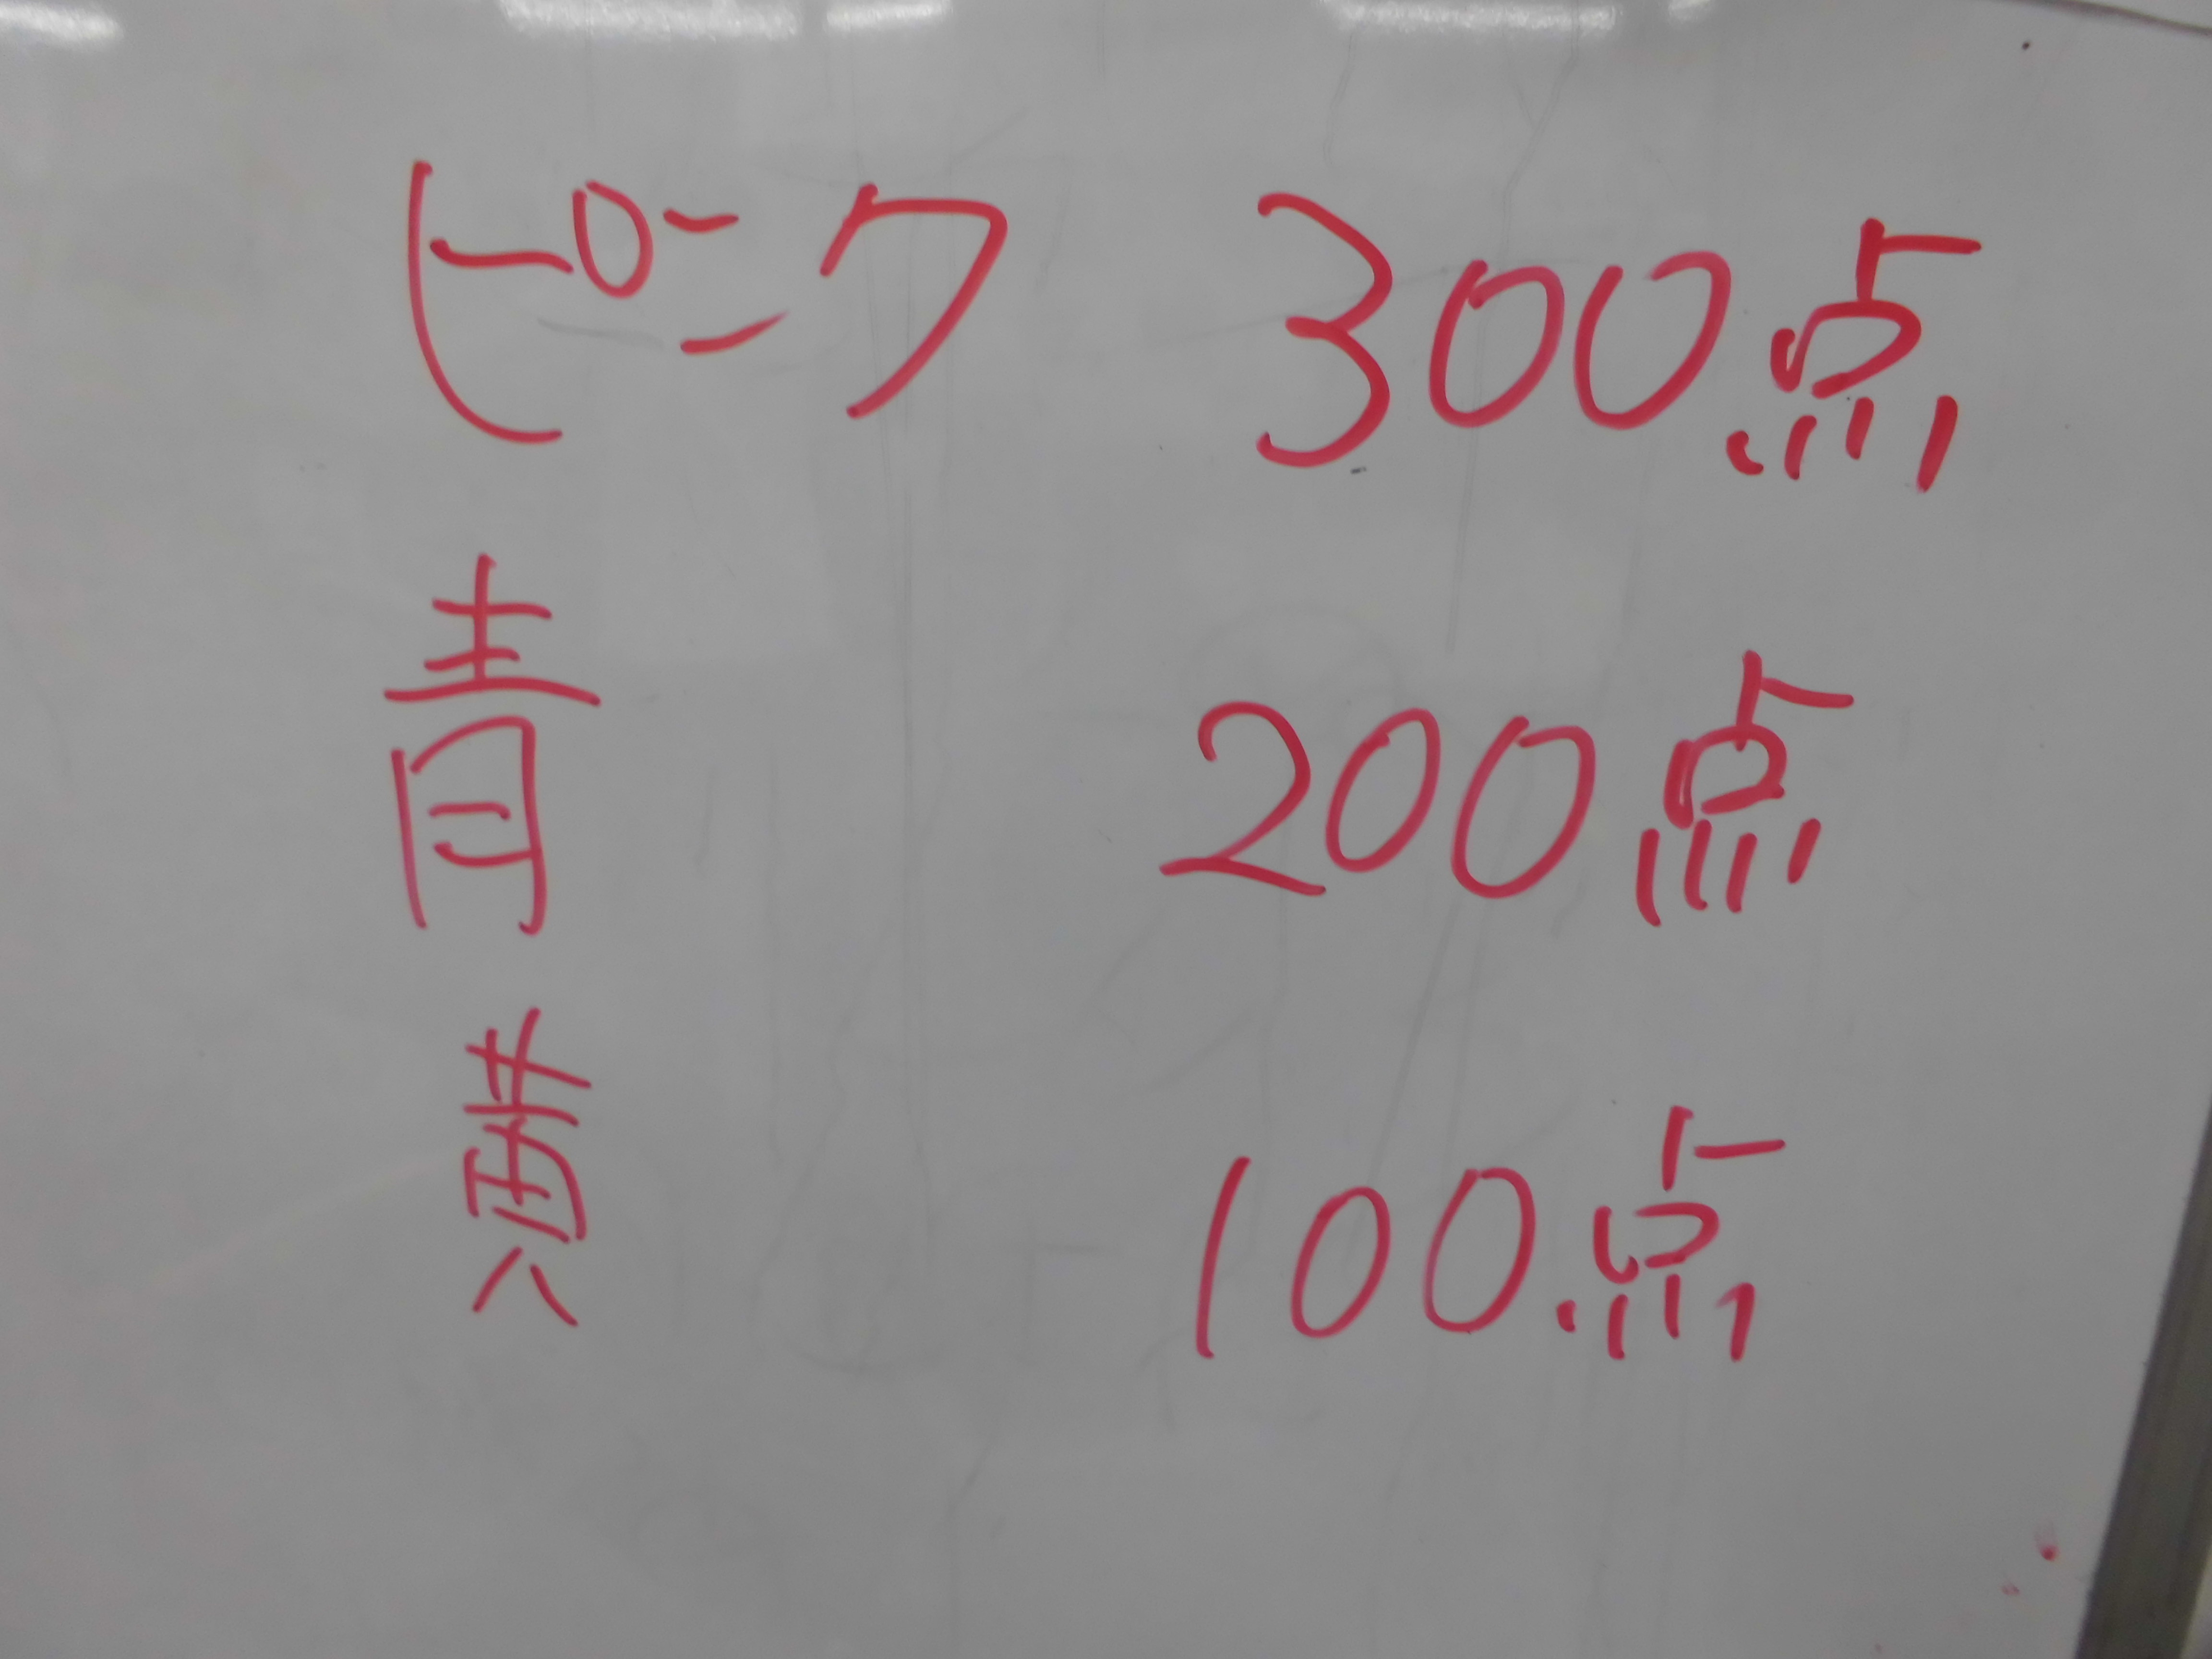 ピンク 300点
青 200点
黄 100点